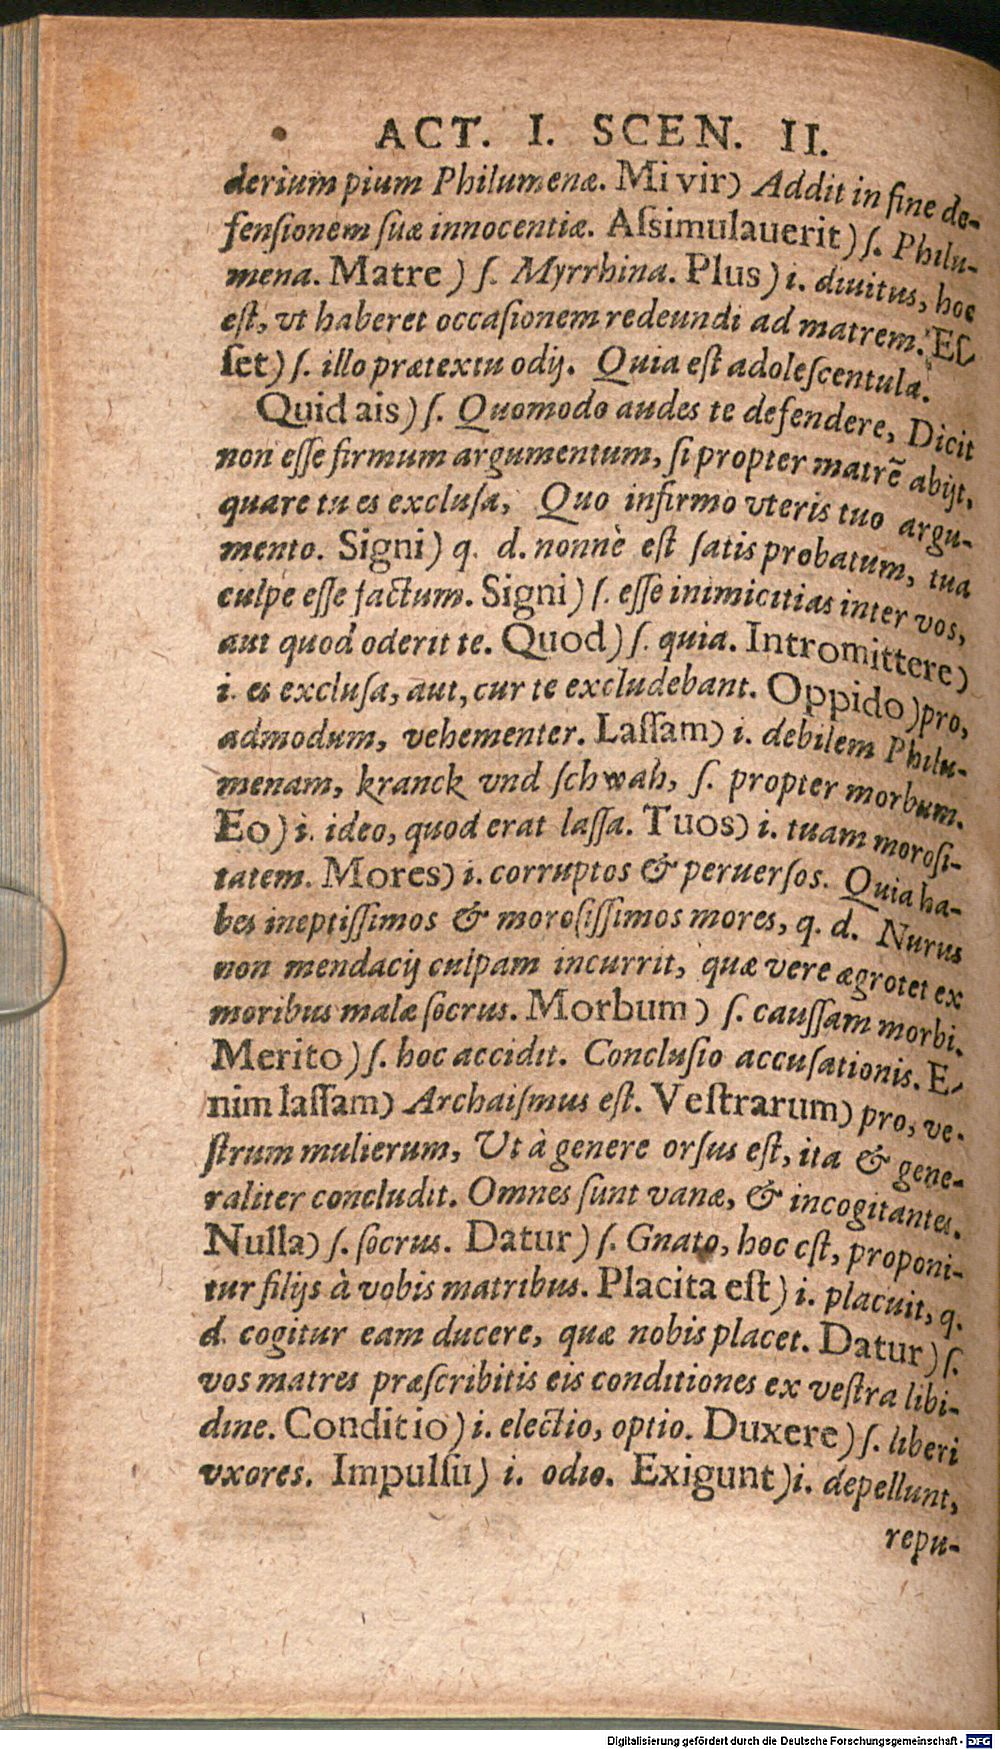 ACT. I. SCEN. II.
derium pium Philumenæ. Mi vir) Addit in fine de-
fenſionem ſuæ innocentiæ. Aſsimulauerit) ſ. Philu-
mena. Matre) ſ. Myrrhina. Plus) i. diuitus, hoc
eſt, vt haberet occaſionem redeundi ad matrem. Eſ-
ſet) ſ. illo prætextu odij. Quia eſt adoleſcentula.
Quid ais) ſ. Quomodo audes te defendere, Dicit
non eſſe firmum argumentum, ſi propter matrẽ abijt,
quare tu es excluſa, Quo infirmo vteris tuo argu-
mento. Signi) q. d. nonnè eſt ſatis probatum, tua
culpe eſſe factum. Signi) ſ. eſſe inimicitias inter vos,
aut quod oderit te. Quod) ſ. quia. Intromittere)
i. es excluſa, aut, cur te excludebant. Oppido) pro,
admodum, vehementer. Laſſam) i. debilem Philu-
menam, kranck vnd ſchwah, ſ. propter morbum.
Eo) i. ideo, quod erat laſſa. Tuos) i. tuam moroſi-
tatem. Mores) i. corruptos & peruerſos. Quia ha-
bes ineptiſſimos & moroſiſſimos mores, q. d. Nurus
non mendacij culpam incurrit, quæ vere ægrotet ex
moribus malæ ſocrus. Morbum) ſ. cauſſam morbi.
Merito) ſ. hoc accidit. Concluſio accuſationis. E-
nim laſſam) Archaiſmus eſt. Veſtrarum) pro, ve-
ſtrum mulierum, Ut à genere orſus eſt, ita & gene-
raliter concludit. Omnes ſunt vanæ, & incogitantes.
Nulla) ſ. ſocrus. Datur) ſ. Gnato, hoc eſt, proponi-
tur filijs à vobis matribus. Placita eſt) i. placuit, q.
d. cogitur eam ducere, quæ nobis placet. Datur) ſ.
vos matres præſcribitis eis conditiones ex veſtra libi-
dine. Conditio) i. electio, optio. Duxere) ſ. liberi
vxores. Impulſu) i. odio. Exigunt) i. depellunt,
repu-
Digitalisierung gefördert durch die Deutsche Forschungsgemeinschaft - DFG